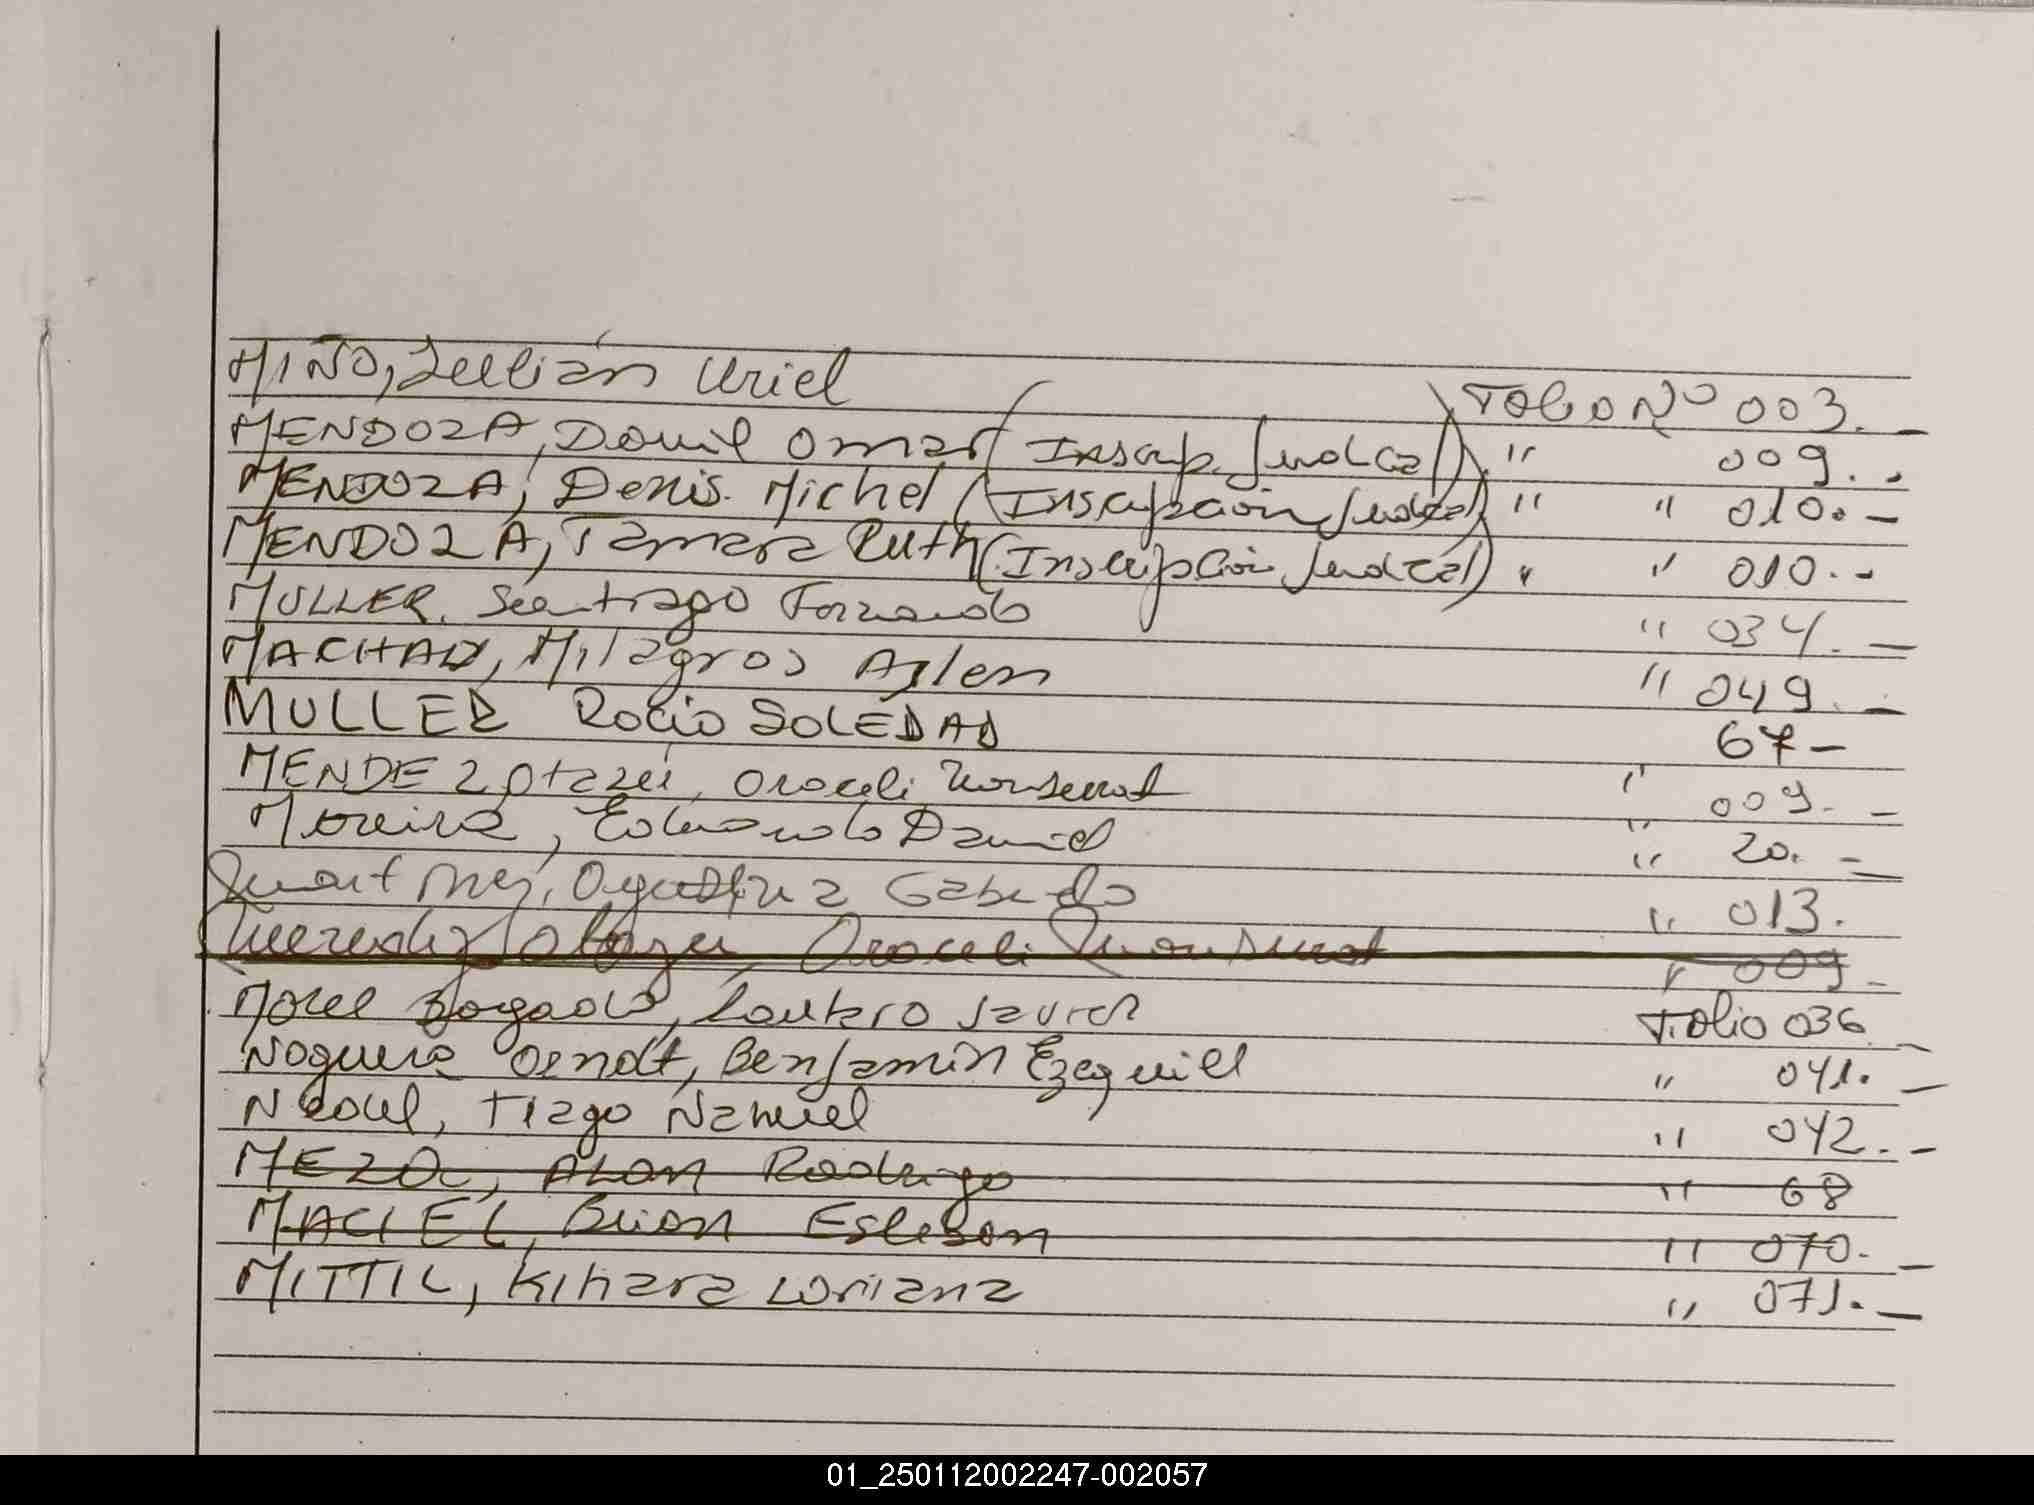 MIÑO, Jullián Uriel Folio Nº 003. -
MENDOZA, Daniel Omar (Inscrip. Judicial) " 009. -
MENDOZA, Denis Michel (Inscripción Judicial) " " 010. -
MENDOZA, Tamara Ruth (Inscripción Judicial) " " 010. -
MULLER, Santiago Fernando " 034. -
MACHADO, Milagros Aylen " 049. -
MULLER Rocio SOLEDAD 67 -
MENDEZ Otazú, Araceli Monserrat " 009. -
Moreira, Eduardo Daniel " 20. -
Martínez, Agustina " 013.
Araceli Monserrat " 009 -
Morel Bogado, Lautaro Javier Folio 036 -
Noguera Arndt, Benjamin Ezequiel " 041. -
Tiago Nahuel " 042. -
MEZA, ALAN Rodrigo " 68
MACIEL, Brian Esteban " 070. -
MITTIL, Kihara Loriana " 071. -
01_250112002247-002057